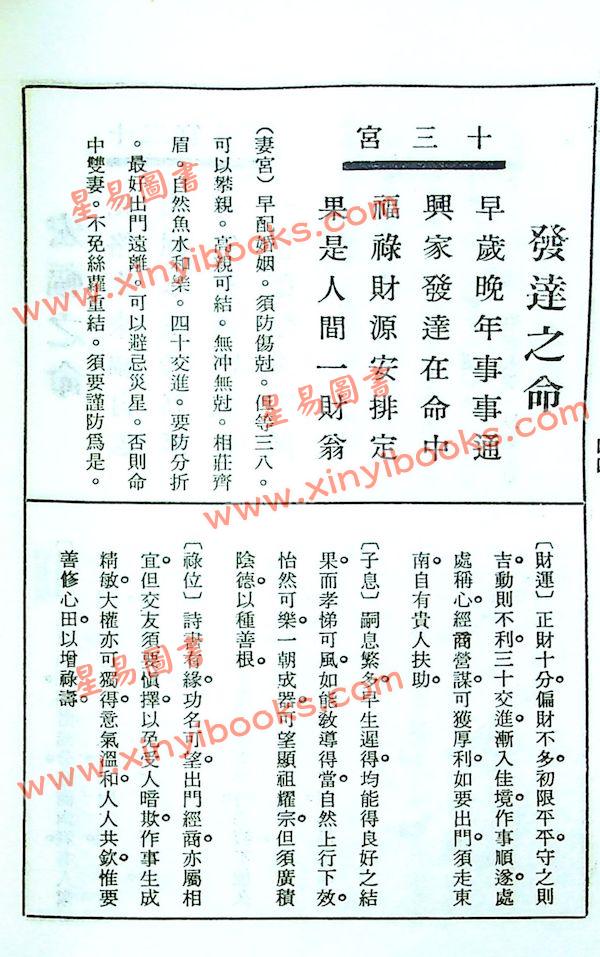 發達之命
十三宮
早歲晚年事事通
興家發達在命中
福祿財源安排定
果是人間一財翁
(妻宮)早配婚姻。須防傷尅。但等三八。
可以攀親。高親可結。無冲無尅。相莊齊
眉。自然魚水和樂。四十交進。要防分折
。最好出門遠離。可以避忌災星。否則命
中雙妻。不免絲蘿重結。須要謹防爲是。
〔財運〕正財十分偏財不多初限平平守之則
吉動則不利三十交進漸入佳境作事順遂處
處稱心經商營謀可獲厚利如要出門須走東
南自有貴人扶助。
〔子息〕嗣息繁多早生遲得均能得良好之結
果而孝悌可風如能教導得當自然上行下效。
怡然可樂一朝成器可望顯祖耀宗但須廣積
陰德以種善根。
〔祿位〕詩書有緣功名可望出門經商亦屬相
宜但交友須要慎擇以免受人暗欺作事生成
精敏大權亦可獨得意氣溫和人人共欽惟要
善修心田以增祿壽。
星易圖書
www.xinyibooks.com
星易圖書
www.xinyibooks.com
星易圖書
www.xinyibooks.com